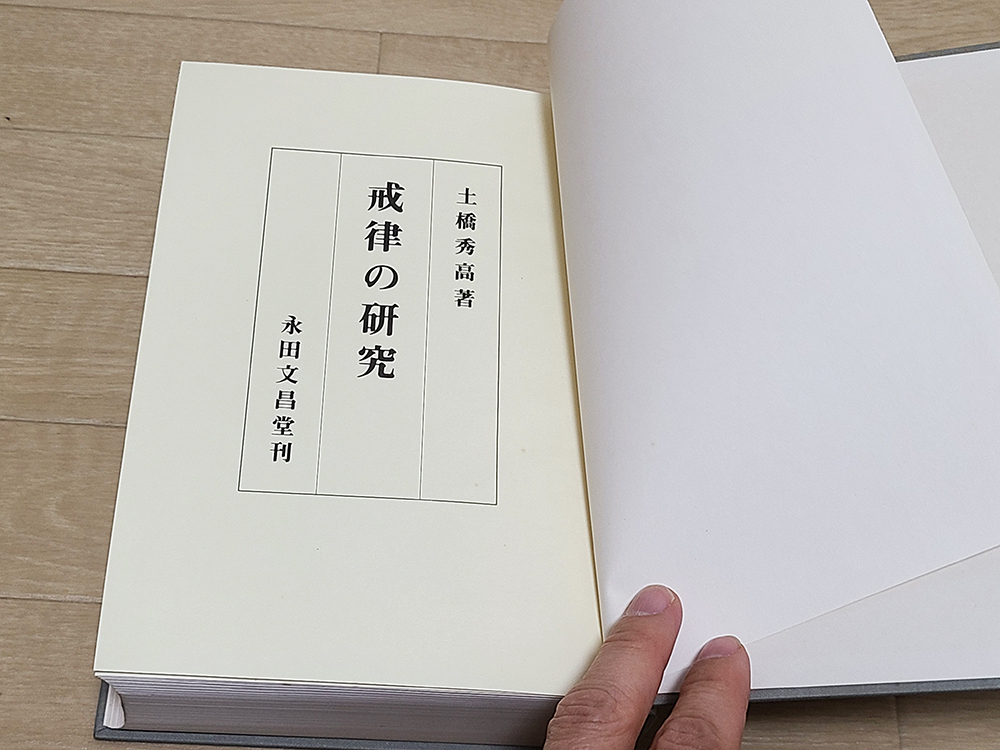 土橋秀高著
戒律の研究
永田文昌堂刊